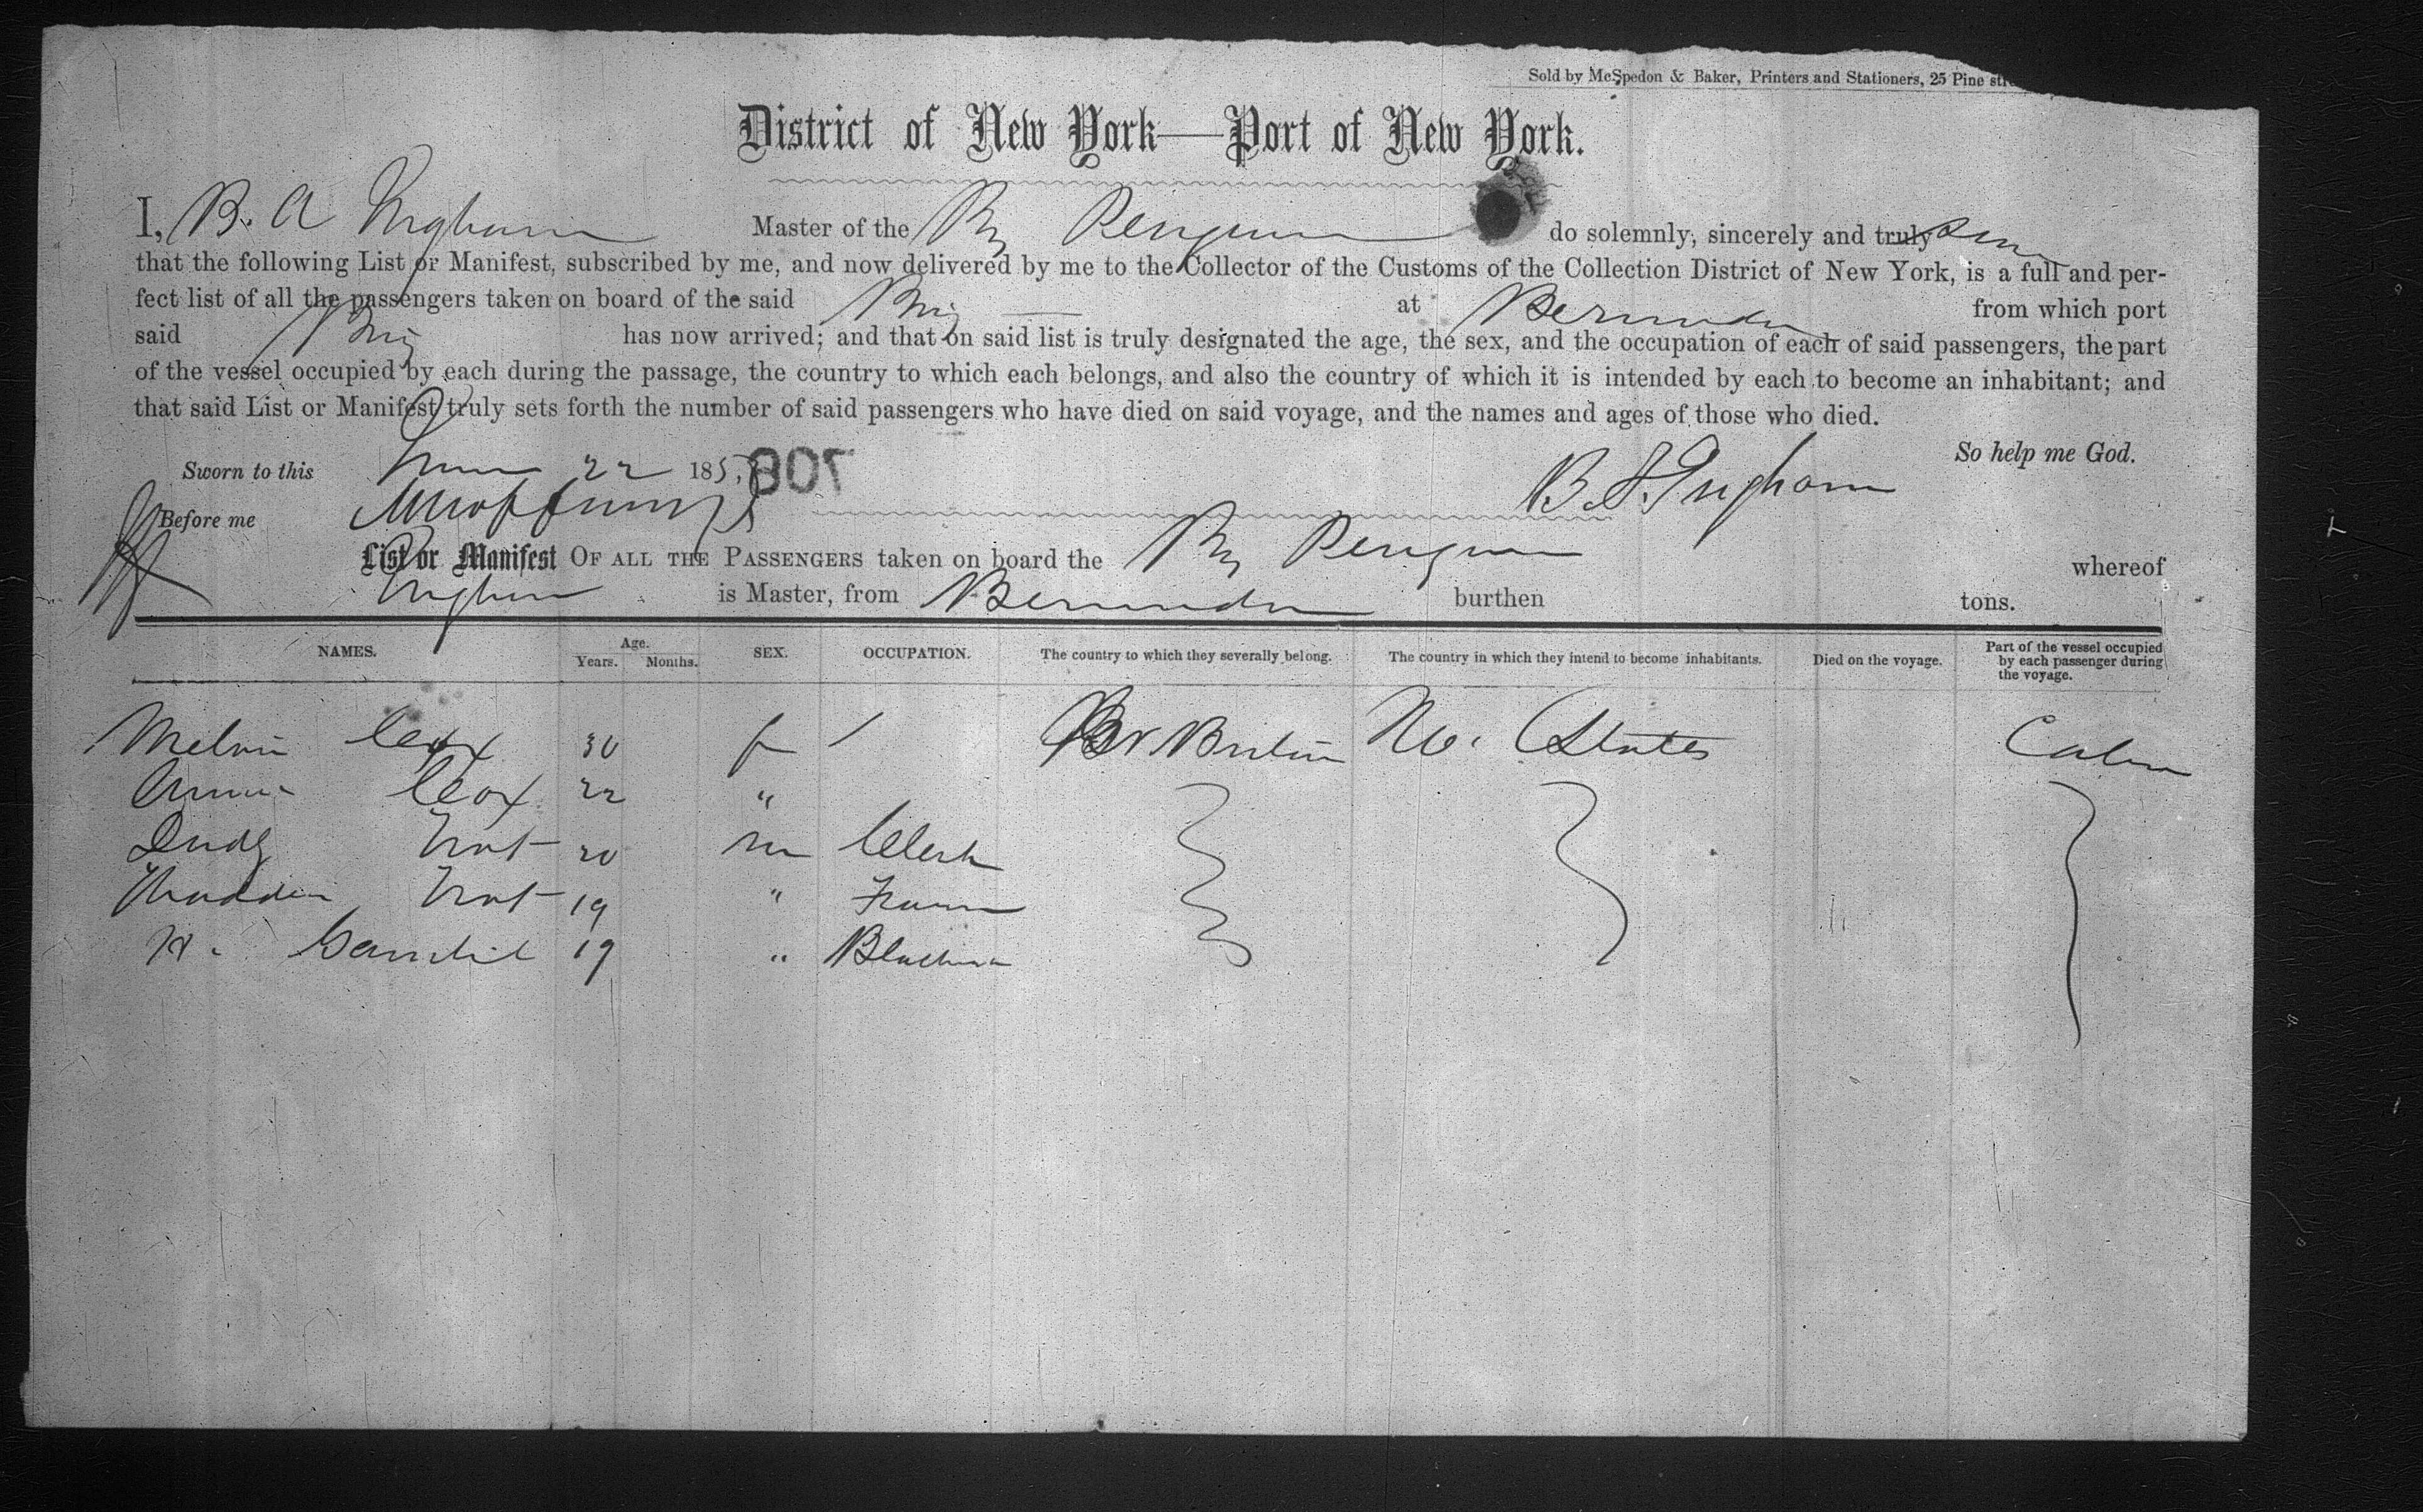 Sold by McSpedon & Baker, Printers and Stationers, 25 Pine
District of New York—Port of New York.
I, B. A Ingham Master of the Brig Penguin do solemnly, sincerely and truly
that the following List or Manifest, subscribed by me, and now delivered by me to the Collector of the Customs of the Collection District of New York, is a full and per-
fect list of all the passengers taken on board of the said Brig at Bermuda from which port
said Brig has now arrived; and that on said list is truly designated the age, the sex, and the occupation of each of said passengers, the part
of the vessel occupied by each during the passage, the country to which each belongs, and also the country of which it is intended by each to become an inhabitant; and
that said List or Manifest truly sets forth the number of said passengers who have died on said voyage, and the names and ages of those who died.
So help me God.
Sworn to this June 22 185 708
B. A. Ingham
Before me
List or Manifest OF ALL THE PASSENGERS taken on board the Brig Penguin whereof
Ingham is Master, from Bermuda burthen tons.
NAMES. Age. Years. Months. SEX. OCCUPATION. The country to which they severally belong. The country in which they intend to become inhabitants. Died on the voyage. Part of the vessel occupied by each passenger during the voyage.
Melvin Cox 30 f Gr Britain States Cabin
Cox 22 "
Trot 20 m Clerk
Trot 19 "
H. 19 "